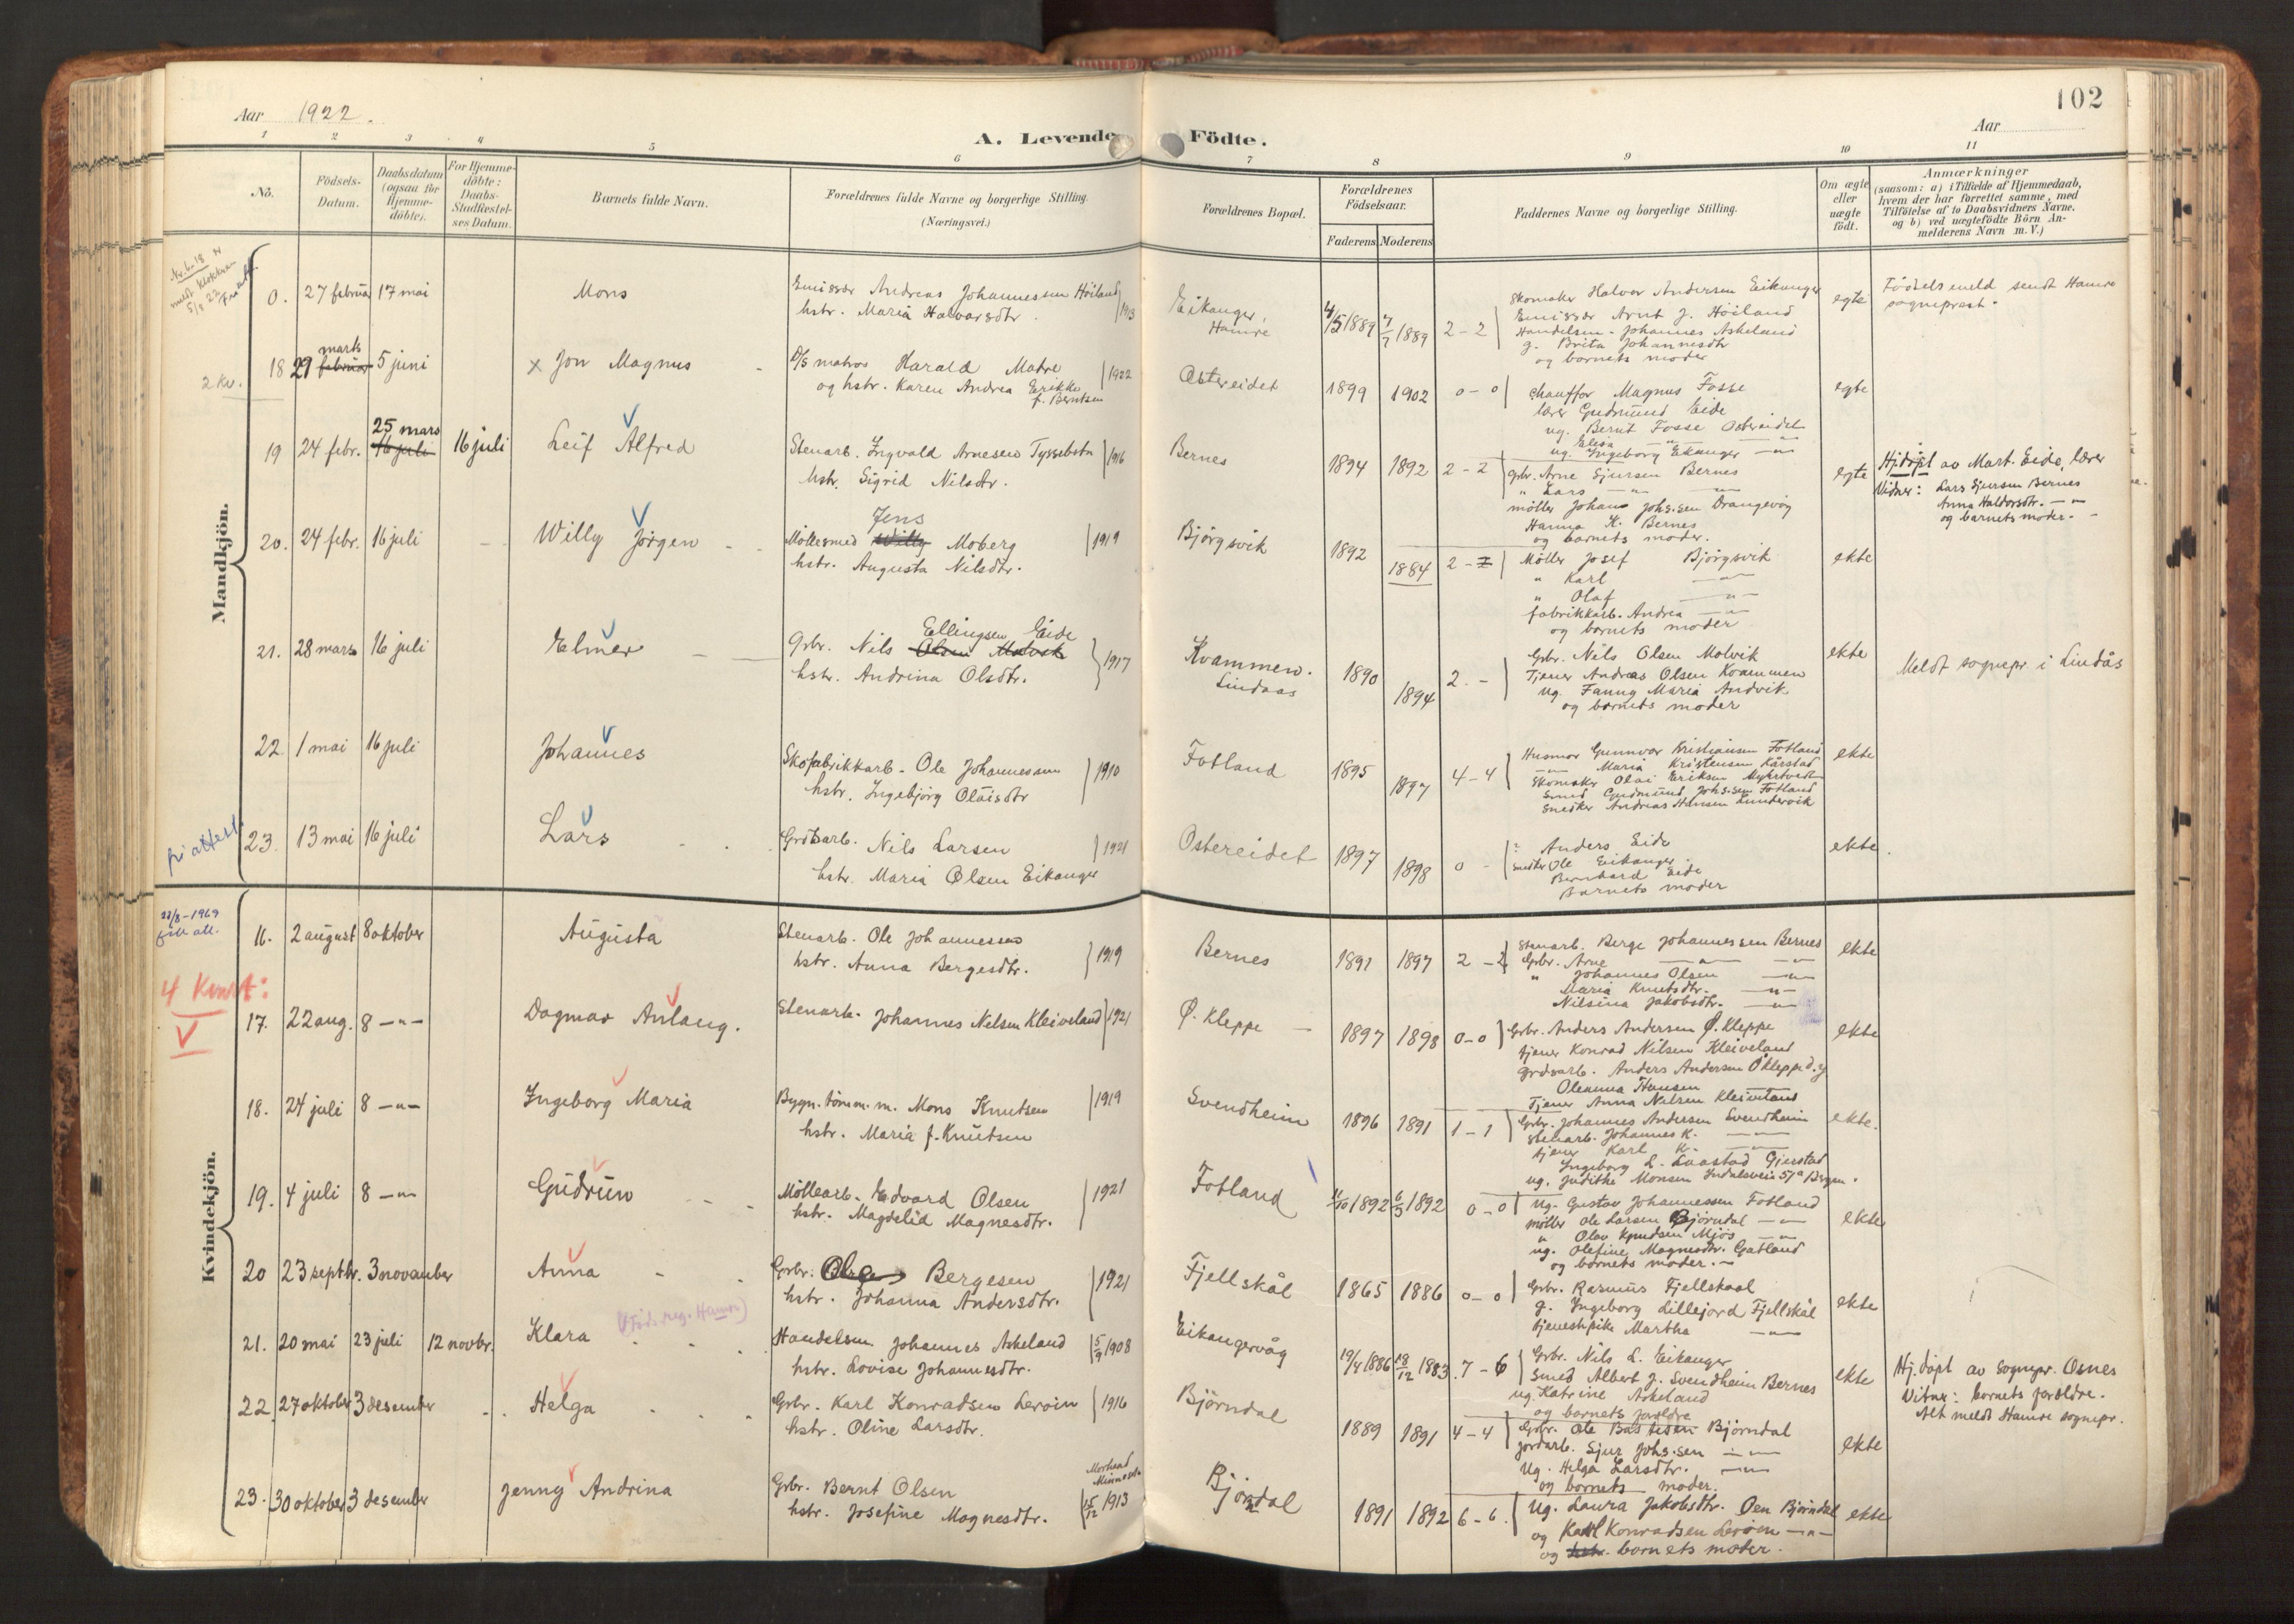 102
Aar 1922.
Aar
A. Levende Födte.
1 2 3 4 5 6 7 8 9 10 11
No.
Födsels-Datum.
Daabsdatum (ogsaa for Hjemme-döbte).
For Hjemme-döbte: Daabs-Stadfæstel-ses Datum.
Barnets fulde Navn.
Forældrenes fulde Navne og borgerlige Stilling.
(Næringsvei.)
Forældrenes Bopæl.
Forældrenes Födselsaar.
Faderens Moderens
Faddernes Navne og borgerlige Stilling.
Om ægte eller uægte födt.
Anmærkninger
(saasom: a) i Tilfælde af Hjemmedaab, hvem der har forrettet samme, med Tilföielse af to Daabsvidners Navne. og b) ved uægtefödte Börn An-melderens Navn m. V.)
Mandkjön.
0. 27 februar 17 mai
Mons
Emissær Andreas Johannessen Höiland
hstr. Maria Halvorsdtr. 1913
Eikanger, Hamre
4/5 1889 7/7 1889 2-2
Skomaker Halvor Andersen Eikanger
Emissær Arnt J. Höiland
Handelsm. Johannes Askeland
g. Brita Johannesdtr
og barnets moder
egte
Födselsmeld sendt Hamre sogneprest.
2 kv.
18 29 marts februar 5 juni
x Jon Magnus
D/S matros Harald Matre
og hstr. Karen Andrea Erikke f. Berntsen 1922
Ostereidet
1899 1902 0-0
Chauffør Magnus Fosse
lærer Gudmund Eide
ug. Bernt Fosse Ostereidet
Elisa
ug. Ingeborg Eikanger
egte
19 24 febr. 25 mars 16 juli 16 juli
Leif Alfred
Stenarb. Ingvald Arnesen Tyssebotn
hstr. Sigrid Nilsdtr. 1916
Bernes
1894 1892 2-2
Grbr. Arne Sjursen Bernes
" Lars -"- -"-
möller Johans Johs.sen Drangevåg
Hanna K. Bernes
og barnets moder.
egte
Hj.döpt av Mart. Eide, lærer
Vidner: Lars Sjursen Bernes
Anna Haldorsdtr. -"-
og barnets moder.
20. 24 febr. 16 juli
Willy Jörgen
Jens
Möllesmed Willy Moberg
hstr. Augusta Nilsdtr. 1919
Björgsvik
1892 1884 2-2
Möller Josef Bjørgsvik
" Karl -"-
" Olaf -"-
fabrikkarb. Andrea -"-
og barnets moder
ekte
21. 28 mars 16 juli
Elmer
Ellingsen Eide
Grbr. Nils Olsen Molvik
hstr. Andrina Olsdtr. 1917
Kvammen. Lindaas
1890 1894 2.-
Grbr. Nils Olsen Molvik
Tjener Andreas Olsen Kvammen
ug. Fanny Maria Andvik
og barnets moder
ekte
Meldt sognepr. i Lindås
22. 1 mai 16 juli
Johannes
Skofabrikkarb. Ole Johannessen
hstr. Ingebjörg Olaisdtr 1910
Fotland
1895 1897 4-4
Husmor Gunnvor Kristiansen Fotland
-"- Maria Kristensen Kårstad
Skomaker Olai Eriksen
Smed Gudmund Johs.sen Fotland
Snedker Andreas Hansen Lundervik
ekte
fri attest.
23. 13 mai 16 juli
Lars
Grdsarb. Nils Larsen
hstr. Maria Olsen Eikanger 1921
Ostereidet
1897 1898 0 -
" Anders Eide
Snedker Ole Eikanger
Bernhard Eide
Barnets moder
ekte.
Kvindekjön.
22/8-1969
16. 2 august 8 oktober
Augusta
Stenarb. Ole Johannessen
hstr. Anna Bergesdtr. 1919
Bernes
1891 1897 2-2
Stenarb. Berge Johannessen Bernes
Grbr. Arne -"- -"-
" Johannes Olsen -"-
Maria Knutsdtr. -"-
Nilsina Jakobsdtr. -"-
ekte
4 Kvart:
17. 22 aug. 8 -"-
Dagmar Aslaug.
Stenarb. Johannes Nelsen Kleiveland 1921
Ø. Kleppe
1897 1898 0-0
Grbr. Anders Andersen Ø. Kleppe
tjener Konrad Nilsen Kleiveland
grdsarb. Anders Andersen Økleppe d.y
Oleanna Hansen
Tjener Anna Nilsen Kleiveland
ekte
18. 24 juli 8 -"-
Ingeborg Maria
Bygn. tömm. m. Mons Knutsen
hstr. Maria f. Knutsen 1919
Svendheim
1896 1891 1-1
Grbr. Johannes Andersen Svendheim
Stenarb. Johannes K. -"-
tjener Karl K. -"-
Ingeborg L. Gjerstad
ug. Judithe Monsen
ekte.
19. 4 juli 8 -"-
Gudrun
Möllearb. Edvard Olsen
hstr. Magdelid Magnesdtr. 1921
Fotland
11/10 1892 6/3 1892 0-0
Ug. Gustav Johannessen Fotland
möller Ole Larsen Bjørndal -"-
" Olav Knudsen Mjös -"-
ug. Olefine Magnesdtr. Gatland
og barnets moder.-
ekte
20 23 septbr. 3 november
Anna
Grbr. Bergesen
hstr. Johanna Andersdtr. 1921
Fjellskål
1865 1886 0-0
Grbr. Rasmus Fjellskaal
g. Ingeborg Lillejord Fjellskål
tjenestpike Martha -"-
ekte
21. 20 mai 23 juli 12 novbr.
Klara
(Föd. reg. Hamre)
Handelsm. Johannes Askeland
hstr. Lovise Johannesdtr. 5/9 1908
Eikangervåg
19/4 1886 18/12 1883. 7-6
Grbr. Nils L. Eikanger
Smed Albert J. Svendheim Bernes
ug. Katrine Askeland
og barnets foreldre
ekte
Hj. döpt av Sognepr. Osnes
Vitner: barnets foreldre.
Alt meldt Hamre sognepr.
22. 27 oktober 3 desember
Helga
Grbr. Karl Konradsen Leröin
hstr. Oline Larsdtr. 1916
Björndal
1889 1891 4-4
Grbr. Ole Bastesen Björndal
jordarb. Sjur Johs.sen -"-
Ug. Helga Larsdtr. -"-
og barnets moder.
ekte
23. 30 oktober 3 desember
Jenny Andrina
Grbr. Bernt Olsen
hstr. Josefine Magnesdtr. 15/12 1913
Björndal
1891 1892 6-6.
Ug. Laura Jakobsdtr. Oen Björndal
og Karl Konradsen Leröen -"-
og hstr. barnets moder.
ekte